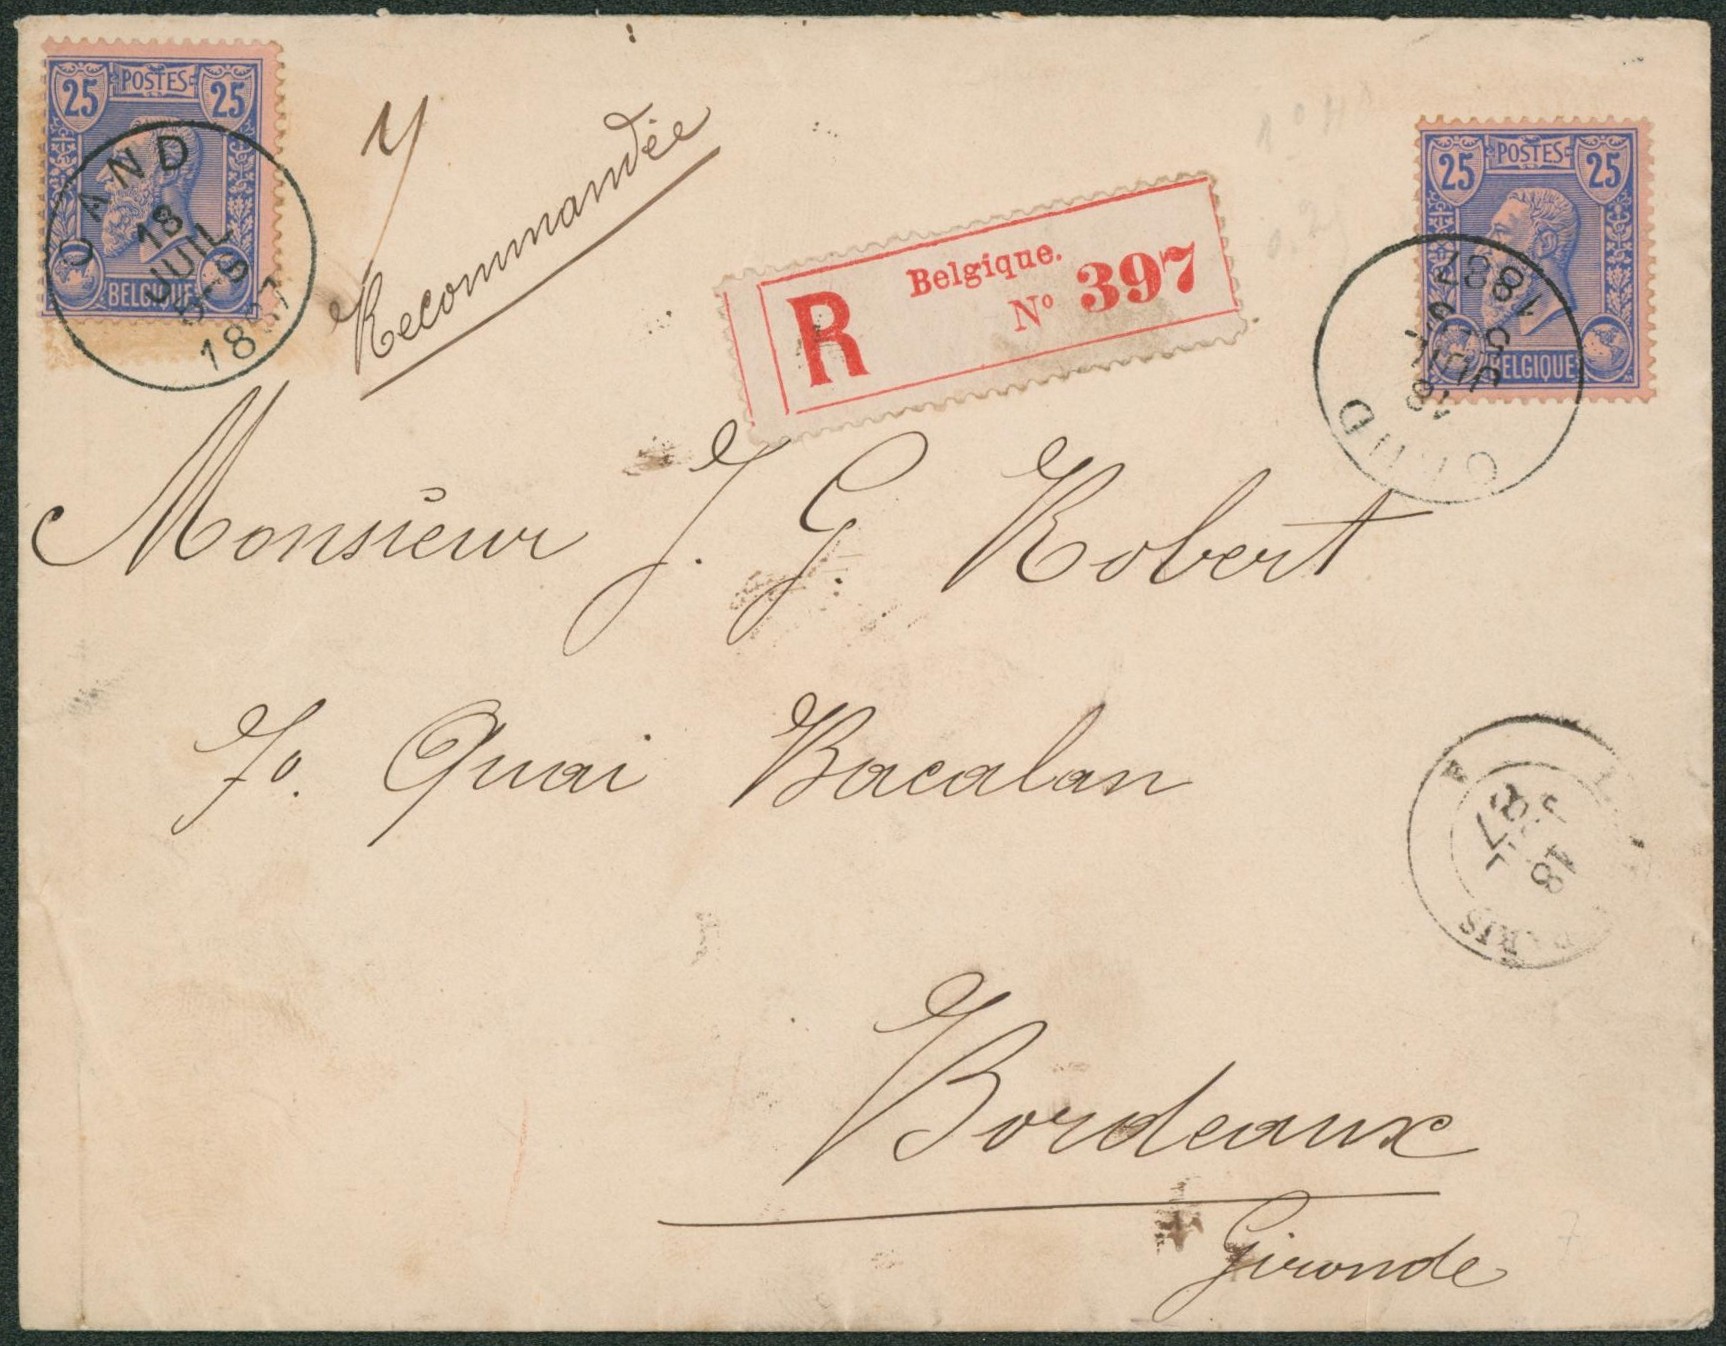 25 POSTES 25
BELGIQUE
GAND
18
JUIL
5-6
1887
Recommandée
R
Belgique.
N° 397
25 POSTES 25
BELGIQUE
GAND
18
JUIL
1887
Monsieur J. G. Robert
70. Quai Bacalan
PARIS
18
JUIL
87
Bordeaux
Gironde